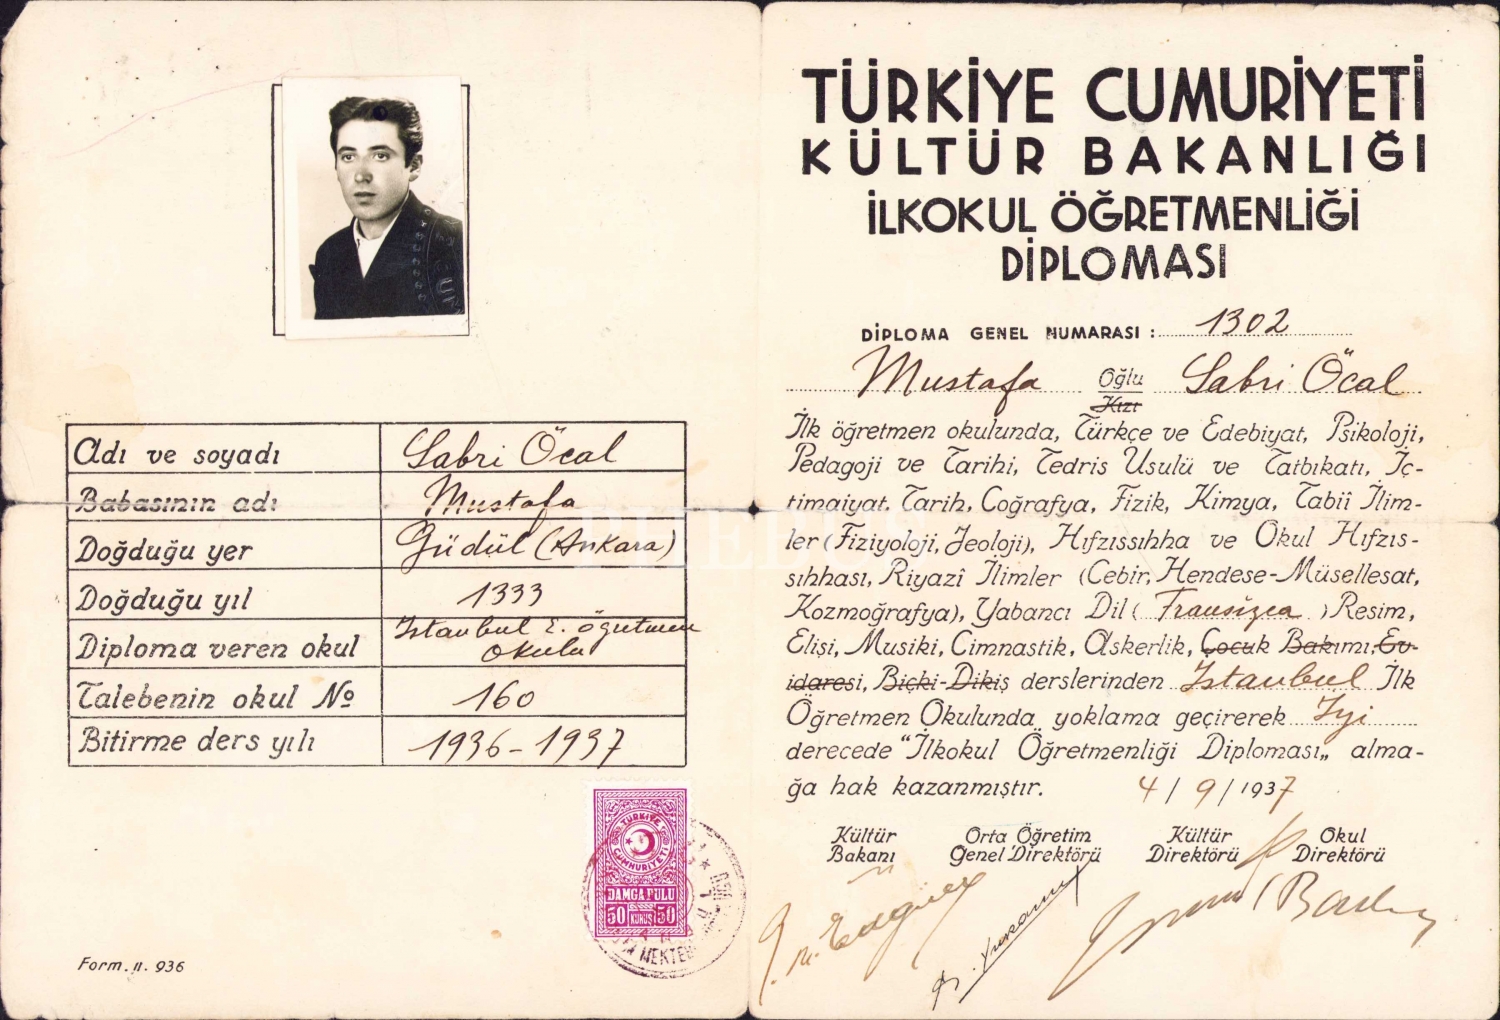 Adı ve soyadı Sabri Öcal
Babasının adı Mustafa
Doğduğu yer Güdül (Ankara)
Doğduğu yıl 1333
Diploma veren okul İstanbul E. öğretmen
okulu
Talebenin okul No 160
Bitirme ders yılı 1936-1937
TÜRKİYE
CUMHURİYETİ
DAMGA PULU
50 KURUŞ 50
Form. 11. 936
TÜRKİYE CUMURİYETİ
KÜLTÜR BAKANLIĞI
İLKOKUL ÖĞRETMENLİĞİ
DİPLOMASI
DİPLOMA GENEL NUMARASI: 1302
Mustafa Oğlu Sabri Öcal
Kızı
İlk öğretmen okulunda, Türkçe ve Edebiyat, Psikoloji,
Pedagoji ve Tarihi, Tedris Usulü ve Tatbikatı, İç-
timaiyat, Tarih, Coğrafya, Fizik, Kimya, Tabiî İlim-
ler (Fiziyoloji, Jeoloji), Hıfzıssıhha ve Okul Hıfzıs-
sıhhası, Riyazî İlimler (Cebir, Hendese-Müsellesat,
Kozmoğrafya), Yabancı Dil (Fransızca) Resim,
Elişi, Musiki, Cimnastik, Askerlik, Çocuk Bakımı, Ev-
idaresi, Biçki-Dikiş derslerinden İstanbul İlk
Öğretmen Okulunda yoklama geçirerek İyi
derecede "İlkokul Öğretmenliği Diploması„ alma-
ğa hak kazanmıştır. 4/9/1937
Kültür Orta Öğretim Kültür Okul
Bakanı Genel Direktörü Direktörü Direktörü
PHEBUS